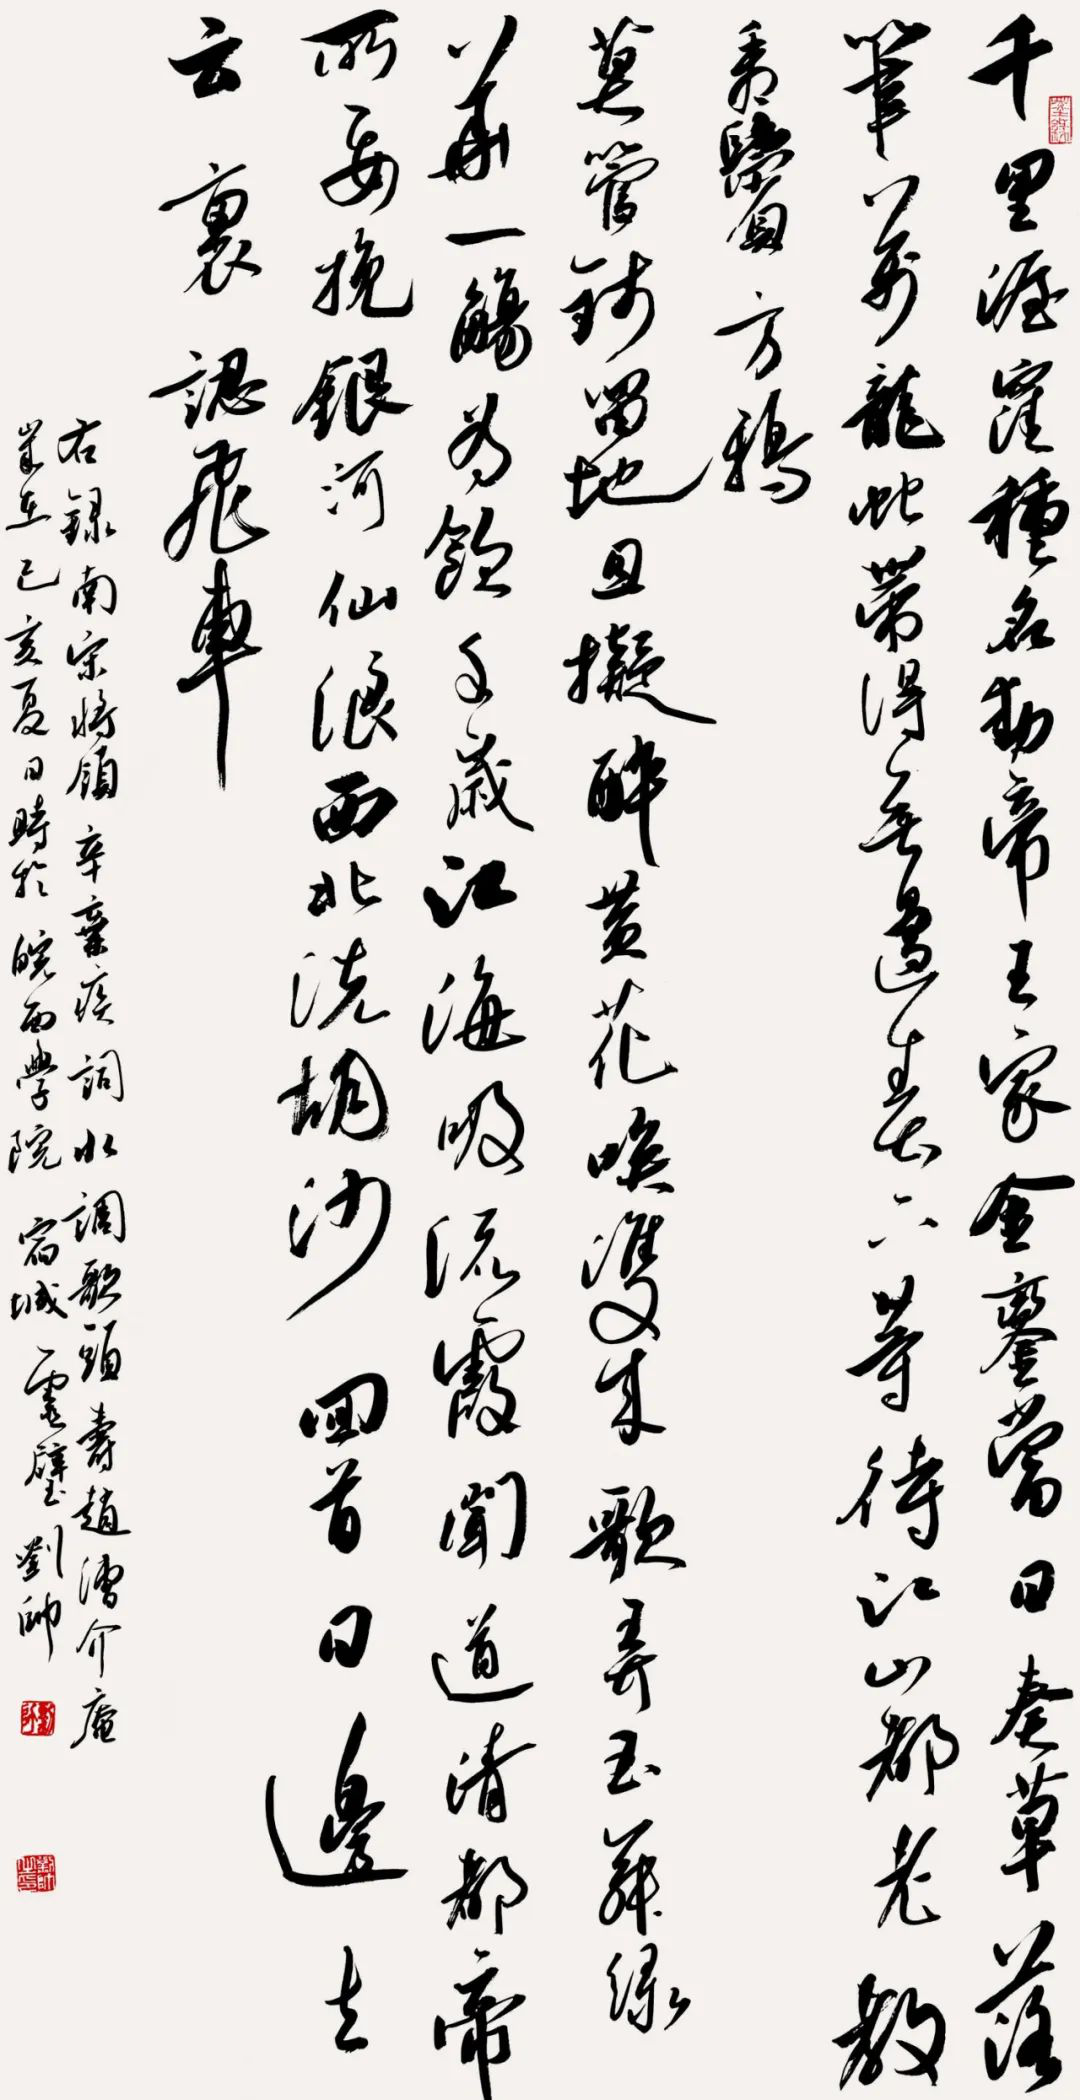 千里渥窪種名動帝王家金鑾當日奏草落
筆萬龍蛇帶得無邊春下等待江山都老教
看鬢方鴉
莫管錢留地且擬醉黄花喚雙成歌弄玉舞绿
華一觴為飲千歲江海吸流霞聞道清都帝
所要挽銀河仙浪西北洗胡沙回首日邊去
云裏認飛車
右録南宋將領辛棄疾詞水調歌頭壽趙漕介庵
歲在己亥夏日時於皖西學院宿城靈璧劉帥